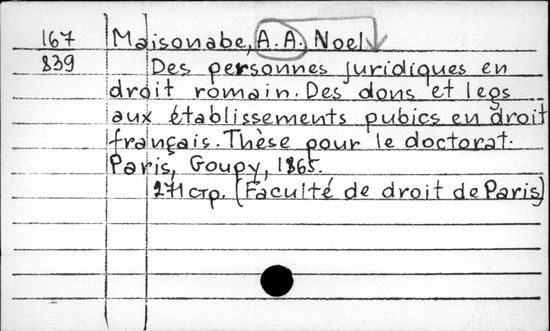 167 Maisonabe, A.A. Noel
839 Des personnes juridiques en
droit romain. Des dons et legs
aux établissements pubics en droit
français. Thèse pour le doctorat.
Paris, Goupy, 1865.
271 стр. (Faculté de droit de Paris)